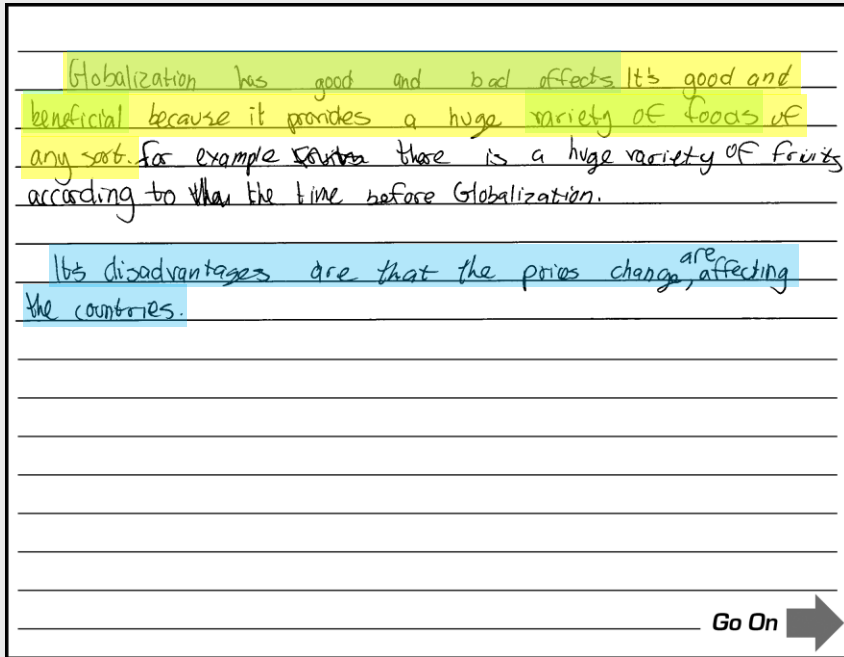 Globalization has good and bad affects It's good and
beneficial because it provides a huge variety of foods of
any sort. for example there is a huge variety of fruits
according to the time before Globalization.
It's disadvantages are that the prices change, are affecting
the countries.
Go On